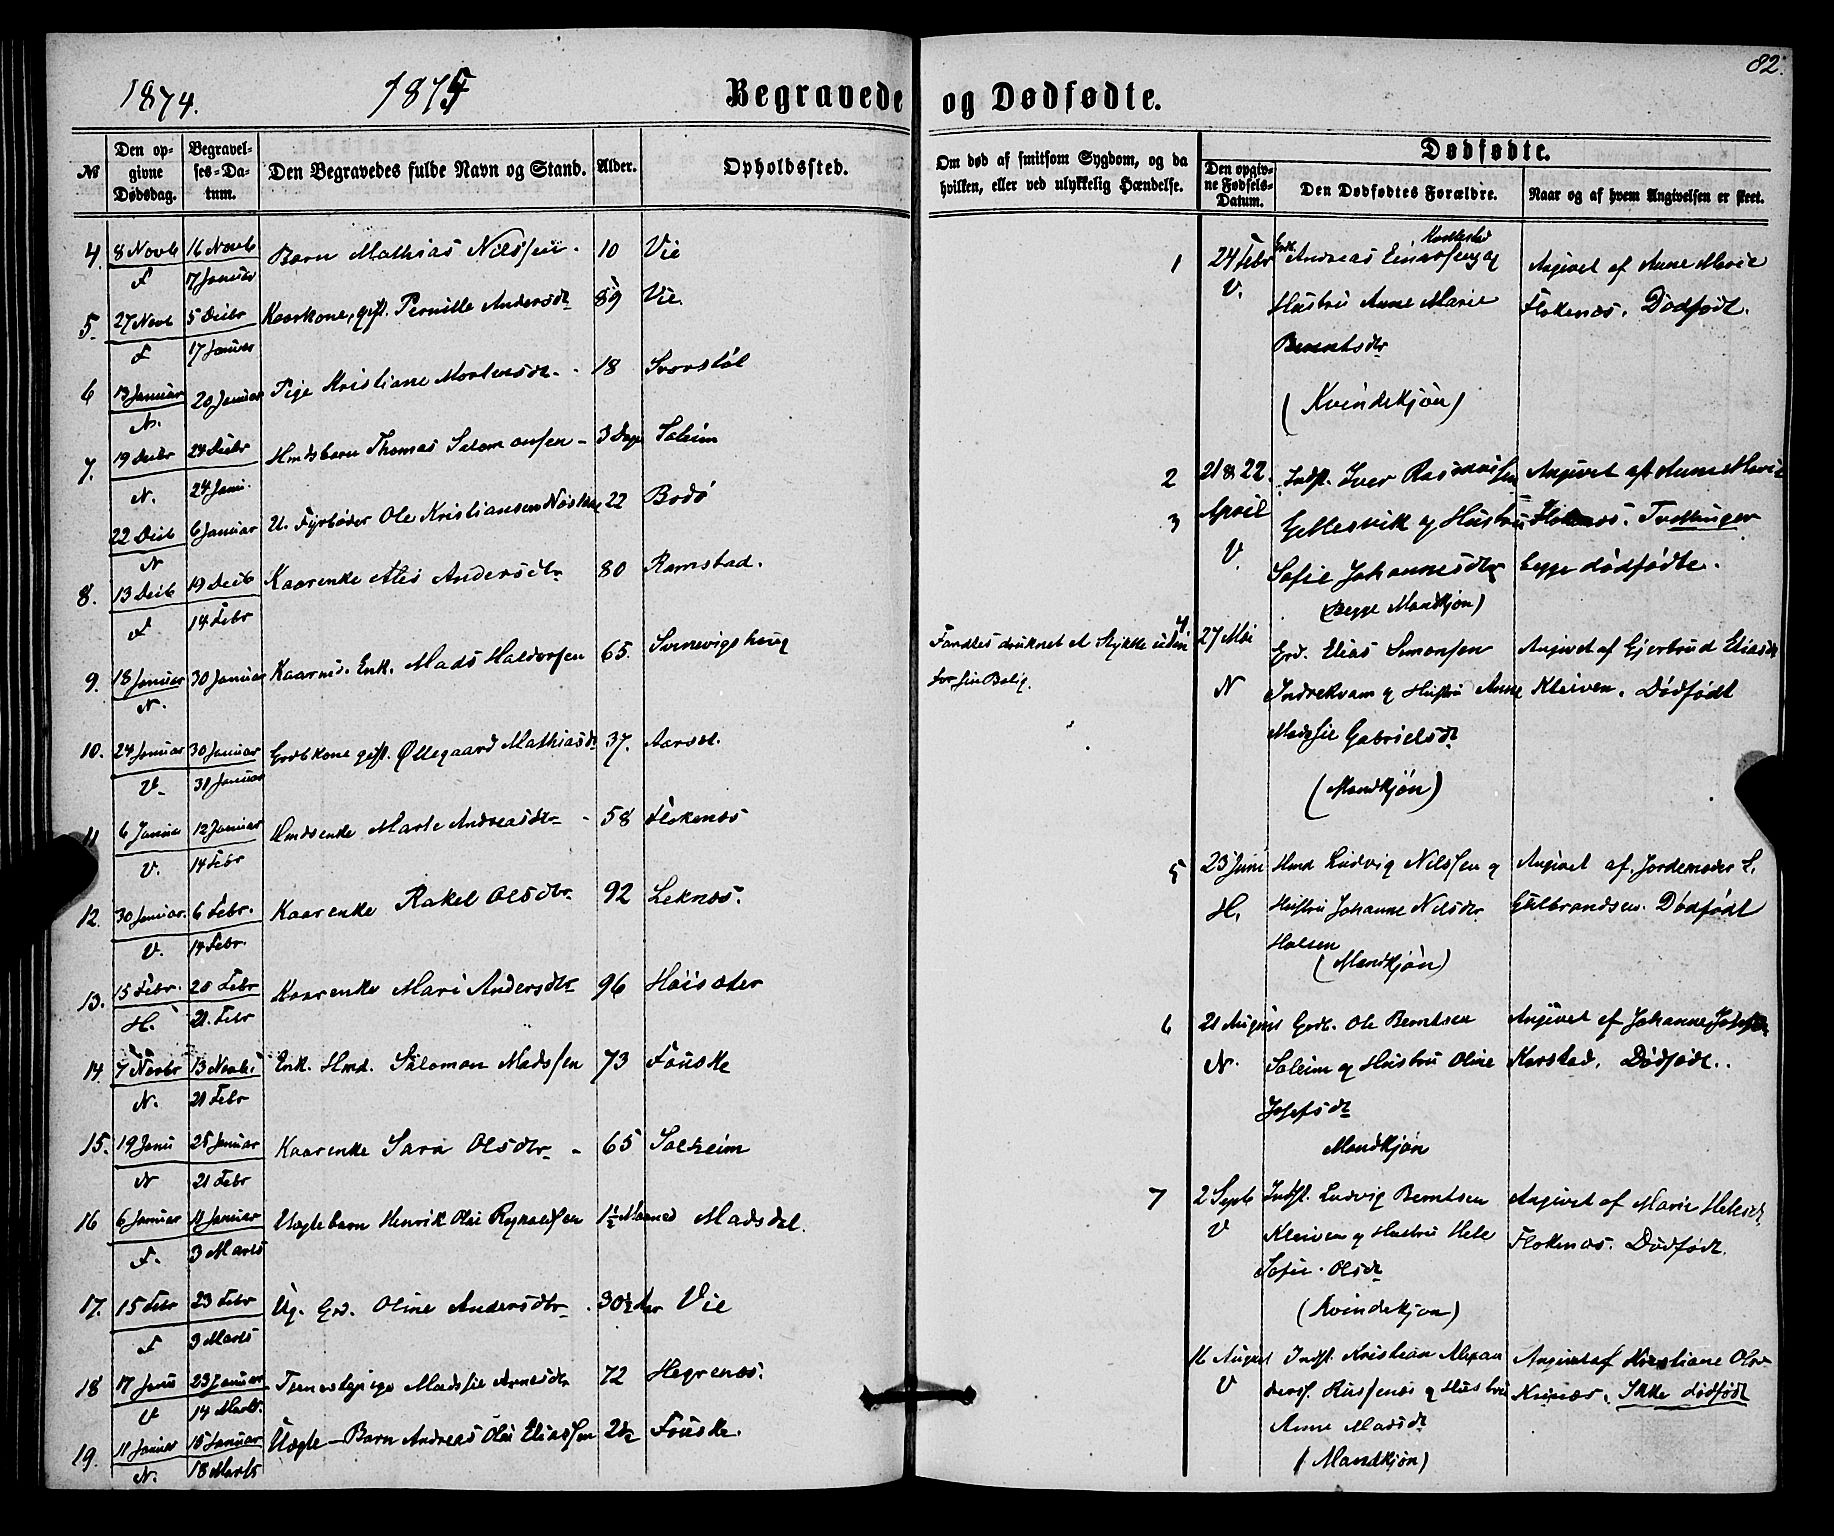 82.
1874. 1875 Begravede og Dødfødte.
№ Den opgivne Dødsdag. Begravelses-Datum. Den Begravedes fulde Navn og Stand. Alder. Opholdssted.
Om død af smitsom Sygdom, og da hvilken, eller ved ulykkelig Hændelse. Dødfødte. Den opgivne Fødsels-Datum. Den Dødfødtes Forældre. Naar og af hvem Angivelsen er skeet.
4. 8 Novb 16 Novb Barn Mathias Nilssen 10 Vie
F 17 Januar
5. 27 Novb 5 Decbr Kaarkone, gift. Pernille Andersdtr 89 Vie
F 17 Januar
6 13 Januar 20 Januar Pige Kristiane Mortensdtr. 18 Svorstøl
N.
7. 19 Decbr 24 Decbr Hmdsbarn Thomas Salomonsen 3 Dage Soleim
N. 24 Janu.
22 Decb 6 Januar U. Fyrbøder Ole Kristiansen 22 Bodø
N
8. 13 Decb 19 Decb Kaarenke Alis Andersdtr 80 Ramstad.
F 14 Febr
9. 18 Januar 30 Januar Kaarmd. Enk. Mads Haldorsen 65. Svinevigshaug
N.
10. 24 Januar 30 Januar Grdbkone gift. Øllegaard Mathiasdtr 37. Aarset.
V. 31 Januar
11 6 Januar 12 Januar Hmdsenke Marte Andreasdtr 58 Flokenæs
V. 14 Febr
12. 30 Januar. 6 Febr. Kaarenke Rakel Olsdtr. 92 Leknæs.
V. 14 Febr.
13. 15 Febr. 20 Febr Kaarenke Mari Andersdtr 96 Høisæter
H. 21. Febr
14. 7 Novbr 13 Novb. Enk. Hmd. Salomon Madssen 73 Fouske
N. 21 Febr
15. 19 Janu 25 Januar Kaarenke Sara Olsdtr 65 Solheim
N 21 Febr
16 6 Januar 11 Januar Uægte barn Henrik Olai 1½ Maaned Madsdel.
F. 3 Marts
17. 15 Febr 23 Febr Ug. Grd. Oline Andersdtr 30½ Aar Vie
F 3 Marts
18 17 Janu 23 Januar Tjenestepige Madssie Arnesdtr 72 Hegrenæs.
V 14 Marts.
19. 11 Januar 15 Januar Uægte Barn Andreas Olai Eliassen 2½ Fouske.
N. 18 Marts
1 24 Febr Grdb. Andreas Einarsen og Angivet af Anne Marie
V. Hustru Anne Marie Flokenæs. Dødfødt.
Berentsdtr
(Kvindekjøn)
2 21 & 22. Indst. Iver Rasmussen Angivet af Anne Marie
3 April Gjellesvik og Hustru Flokenæs. Tvillinger
V. Sofie Johannesdtr begge dødfødte.
(Begge Mandkjøn)
Fandtes druknet et Stykke uden
for sin Bolig.
4 27 Mai Grd. Elias Simonsen Angivet af Gjertrud Eliasdtr
N Indrekvam og Hustru Anne Kleiven. Dødfødt
Madssie Gabrielsdtr
(Mandkjøn)
5 23 Juni Hmd Ludvig Nilssen og Angivet af Jordemoder L.
H. Hustru Johanne Nilsdtr Gulbrandsen. Dødfødt
Halsen
(Mandkjøn)
6 21 August Grdb. Ole Berntsen Angivet af Johanne
N. Soleim og Hustru Oline Karstad. Dødfødt.
Josefsdtr
Mandkjøn
7 2 Septb Indst. Ludvig Berntsen Angivet af Marie
V Kleiven og Hustru Hele Flokenæs. Dødfødt.
Sofie Olsdtr
(Kvindekjøn)
16 August Indst. Kristian Alexan Angivet af Kristiane
V derss. og Hustru Ikke dødfødt
Anne Madsdtr
(Mandkjøn)